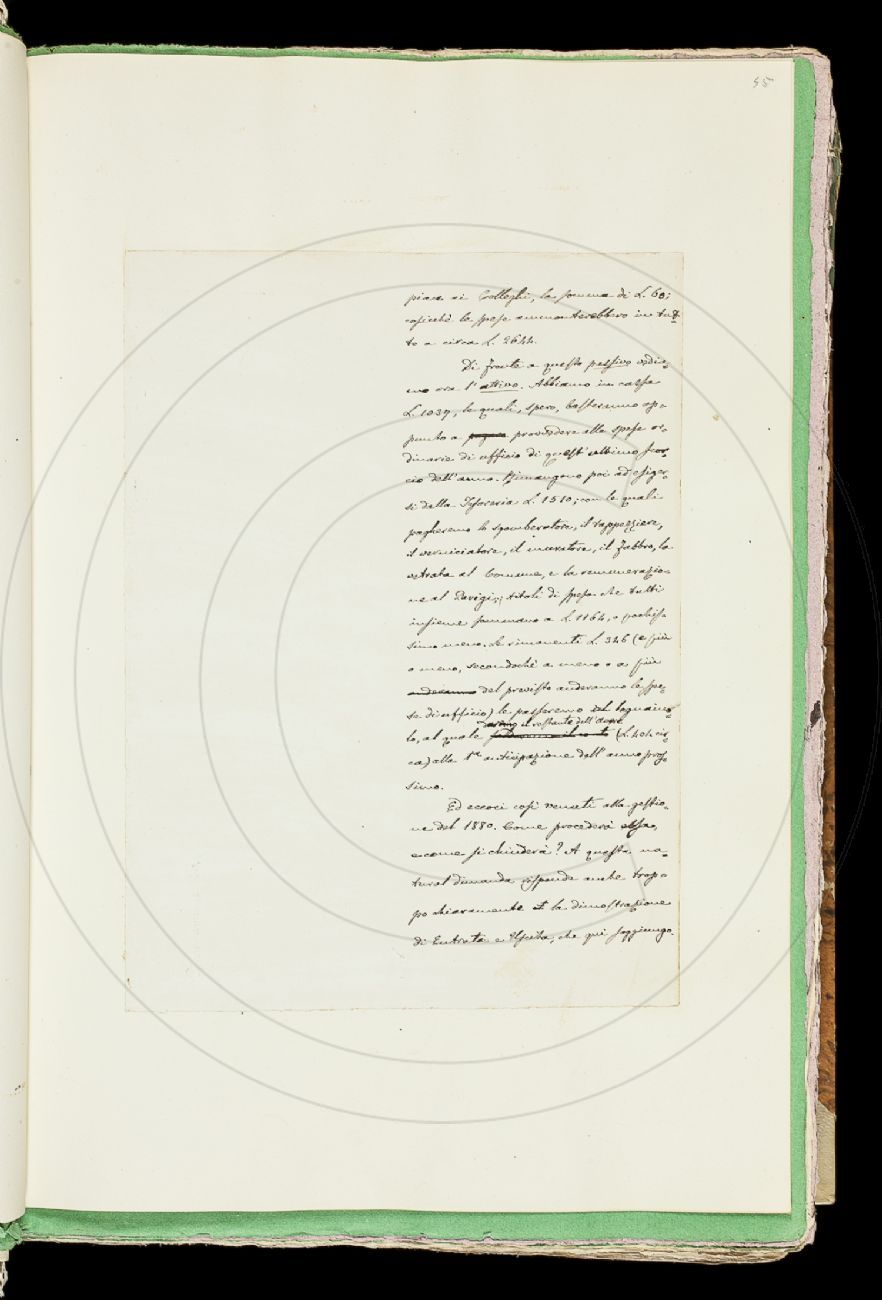 55
piace ai Colleghi, la somma di L. 60;
cosicchè le spese ammonterebbero in tut-
to a circa L. 2644.
Di fronte a questo passivo vedia-
mo ora l'attivo. Abbiamo in cassa
L. 1039, le quali, spero, basteranno ap-
punto a pagare provvedere alle spese or-
dinarie di ufficio di quest'ultimo scor-
cio dell'anno. Rimangono poi ad esiger-
si dalla Tesoreria L. 1510; con le quali
pagheremo lo sgomberatore, il tappezziere,
il verniciatore, il muratore, il fabbro, la
vetrata al Comune, e la remunerazio-
ne al Parigi; titoli di spesa che tutti
insieme sommano a L. 1164, o pochis-
simo meno. Le rimanenti L. 346 (e più
o meno, secondochè a meno o a più
anderanno del previsto anderanno le spe-
se di ufficio) le passeremo al legnaiuo-
daremo il restante dell'avere
lo, al quale (L. 404 cir-
ca) alla 1ª anticipazione dell'anno pros-
simo.
Ed eccoci così venuti alla gestio-
ne del 1880. Come procederà essa,
e come si chiuderà? A questa na-
tural dimanda risponde anche trop-
po chiaramente la dimostrazione
di Entrata e Uscita, che qui soggiungo.